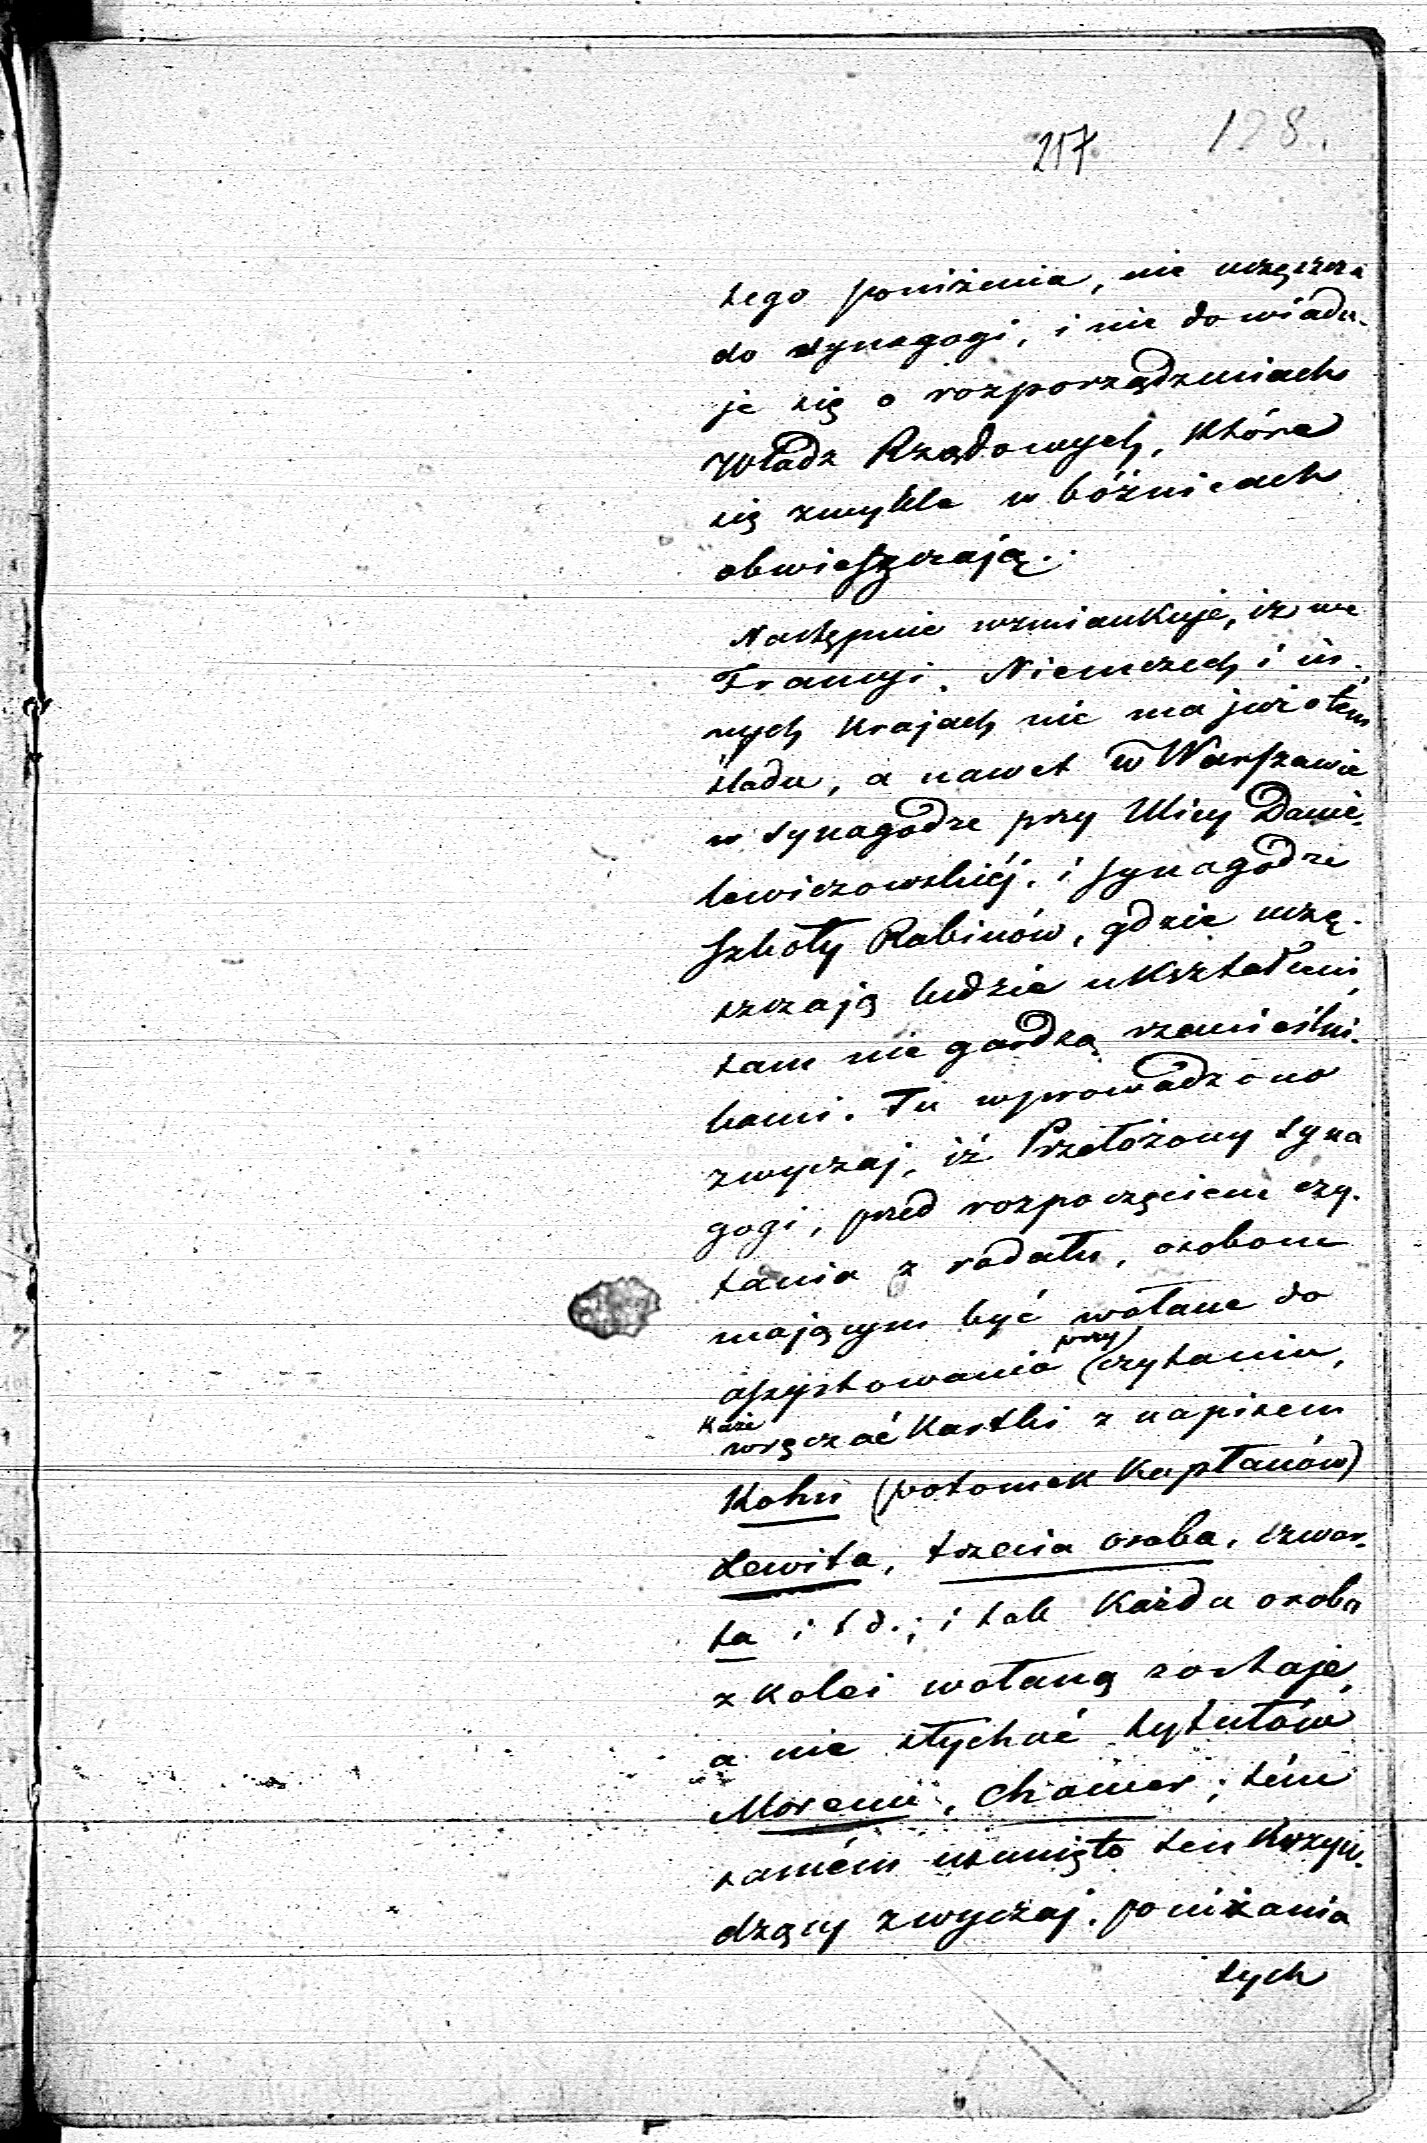 217 128.
tego poniżenia, nie uczęszcza
do synagogi, i nie dowiadu-
je się o rozporządzeniach
Władz Rządowych, które
się zwykle w bóżnicach
obwieszczają.
Następnie wzmiankuje, iż we
Francyi, Niemczech i in-
nych Krajach nie ma już o tem
śladu, a nawet w Warszawie
w synagodze przy Ulicy Danie-
lewiczowskiéj, i synagodze
Szkoły Rabinów, gdzie uczę-
szczają ludzie ukształceni,
tam nie gardzą rzemieślni-
kami. Tu wprowadzono
zwyczaj, iż Przełożony syna
gogi, przed rozpoczęciem czy-
tania z rodału, osobom
mającym być wołane do
assystowania przy czytaniu,
każe wręczać Kartki z napisem
Kohn (potomek Kapłanów)
Lewita, trzecia osoba, czwar-
ta i t d.; i tak Każda osoba
z kolei wołaną zostaje,
a nie słychać tytułów
Morenu, Chawer; tém
samém usunięto ten Krzyw-
dzący zwyczaj poniżania
tych